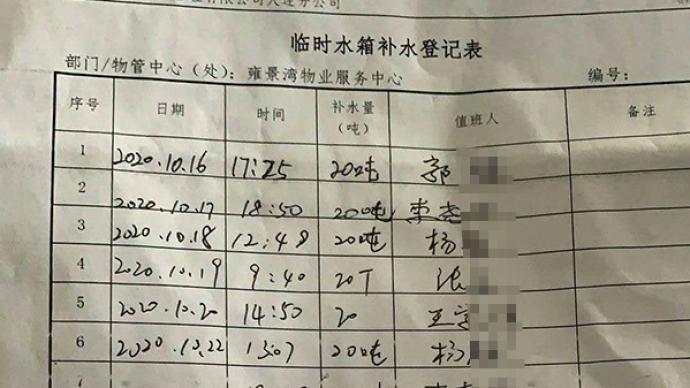 有限公司大连分公司
临时水箱补水登记表
部门/物管中心（处）：雍景湾物业服务中心 编号：
序号 日期 时间 补水量（吨） 值班人 备注
1 2020.10.16 17:25 20吨 郭
2 2020.10.17 18:50 20吨 李
3 2020.10.18 12:48 20吨 杨
4 2020.10.19 9:40 20T 张
5 2020.10.20 14:50 20 王
6 2020.10.22 13:07 20吨 杨